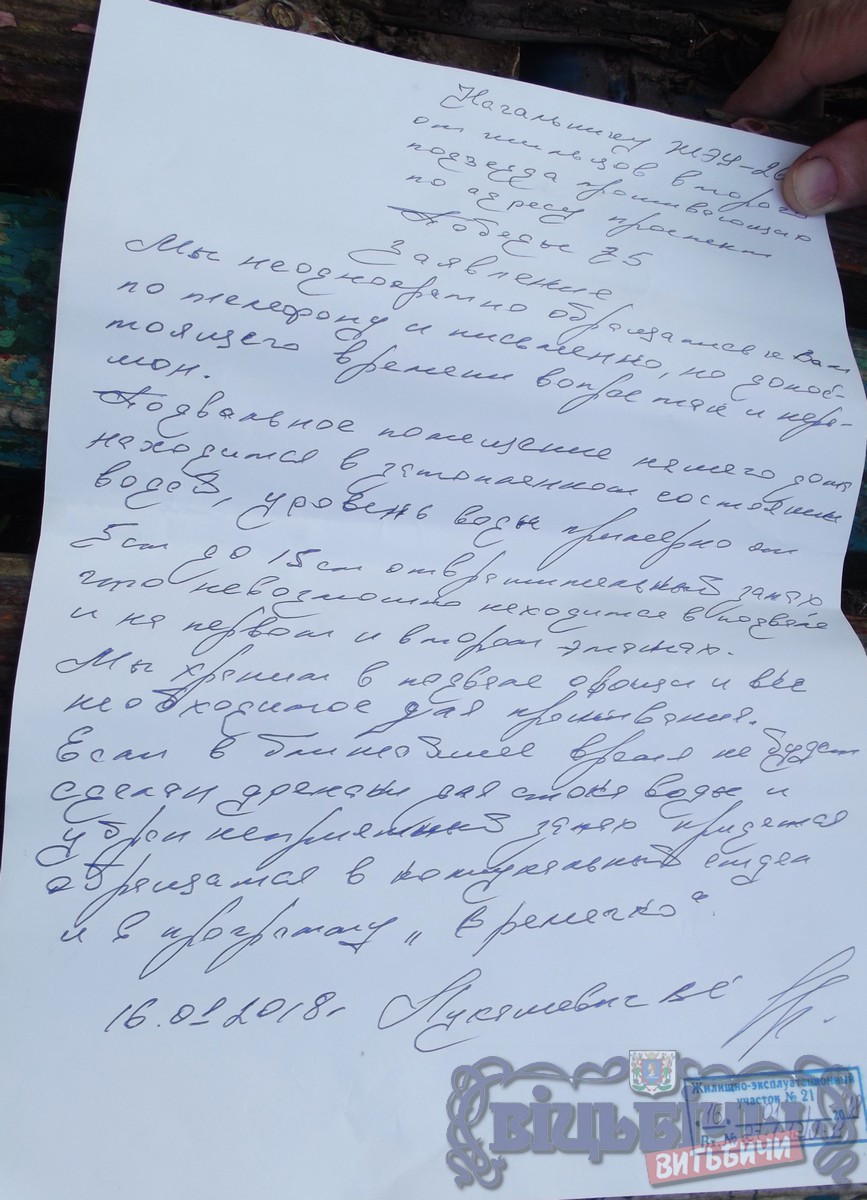 Начальнику ЖЭУ-2
от жильцов второго
подъезда проживающих
по адресу проспект
Победы 75
Заявление
Мы неоднократно обращались к Вам
по телефону и письменно, но до нос-
тоящего времени вопрос так и не ре-
шон.
Подвальное помещение нашего дома
находится в затопленном состоянии
водой, уровень воды примерно от
5см до 15см отвратительный запах
что невозможно находится в подвале
и на первом и втором этажах.
Мы храним в подвале овощи и всё
необходимое для проживания.
Если в ближайшее время не будет
сделан дренаж для стока воды и
убран неприятный запах придется
обращатся в комунальный отдел
и в програму „Времечко".
16.01 2018г. Лукашевич ВЕ
Жилищно-эксплуатационный
участок № 21
16
Вх. №
ВІЦЬБІЧЫ
ВИТЬБИЧИ